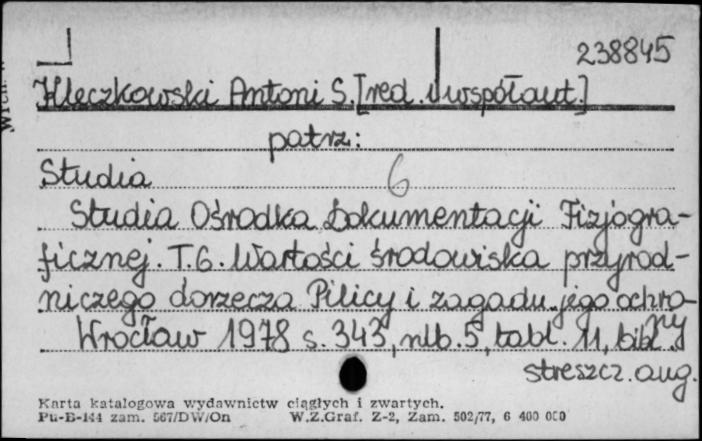 238845
Kleczkowski Antoni S. [red. i współaut.]
patrz:
Studia 6
Studia Ośrodka Dokumentacji Fizjogra-
ficznej. T.6. Wartości środowiska przyrod-
niczego dorzecza Pilicy i zagadn. jego ochro-
ny
Wrocław 1978 s. 343, nlb. 5, tabl. 11, bibl.
streszcz. ang.
Karta katalogowa wydawnictw ciągłych i zwartych.
Pu-B-144 zam. 567/DW/On W.Z.Graf. Z-2, Zam. 502/77, 6 400 000